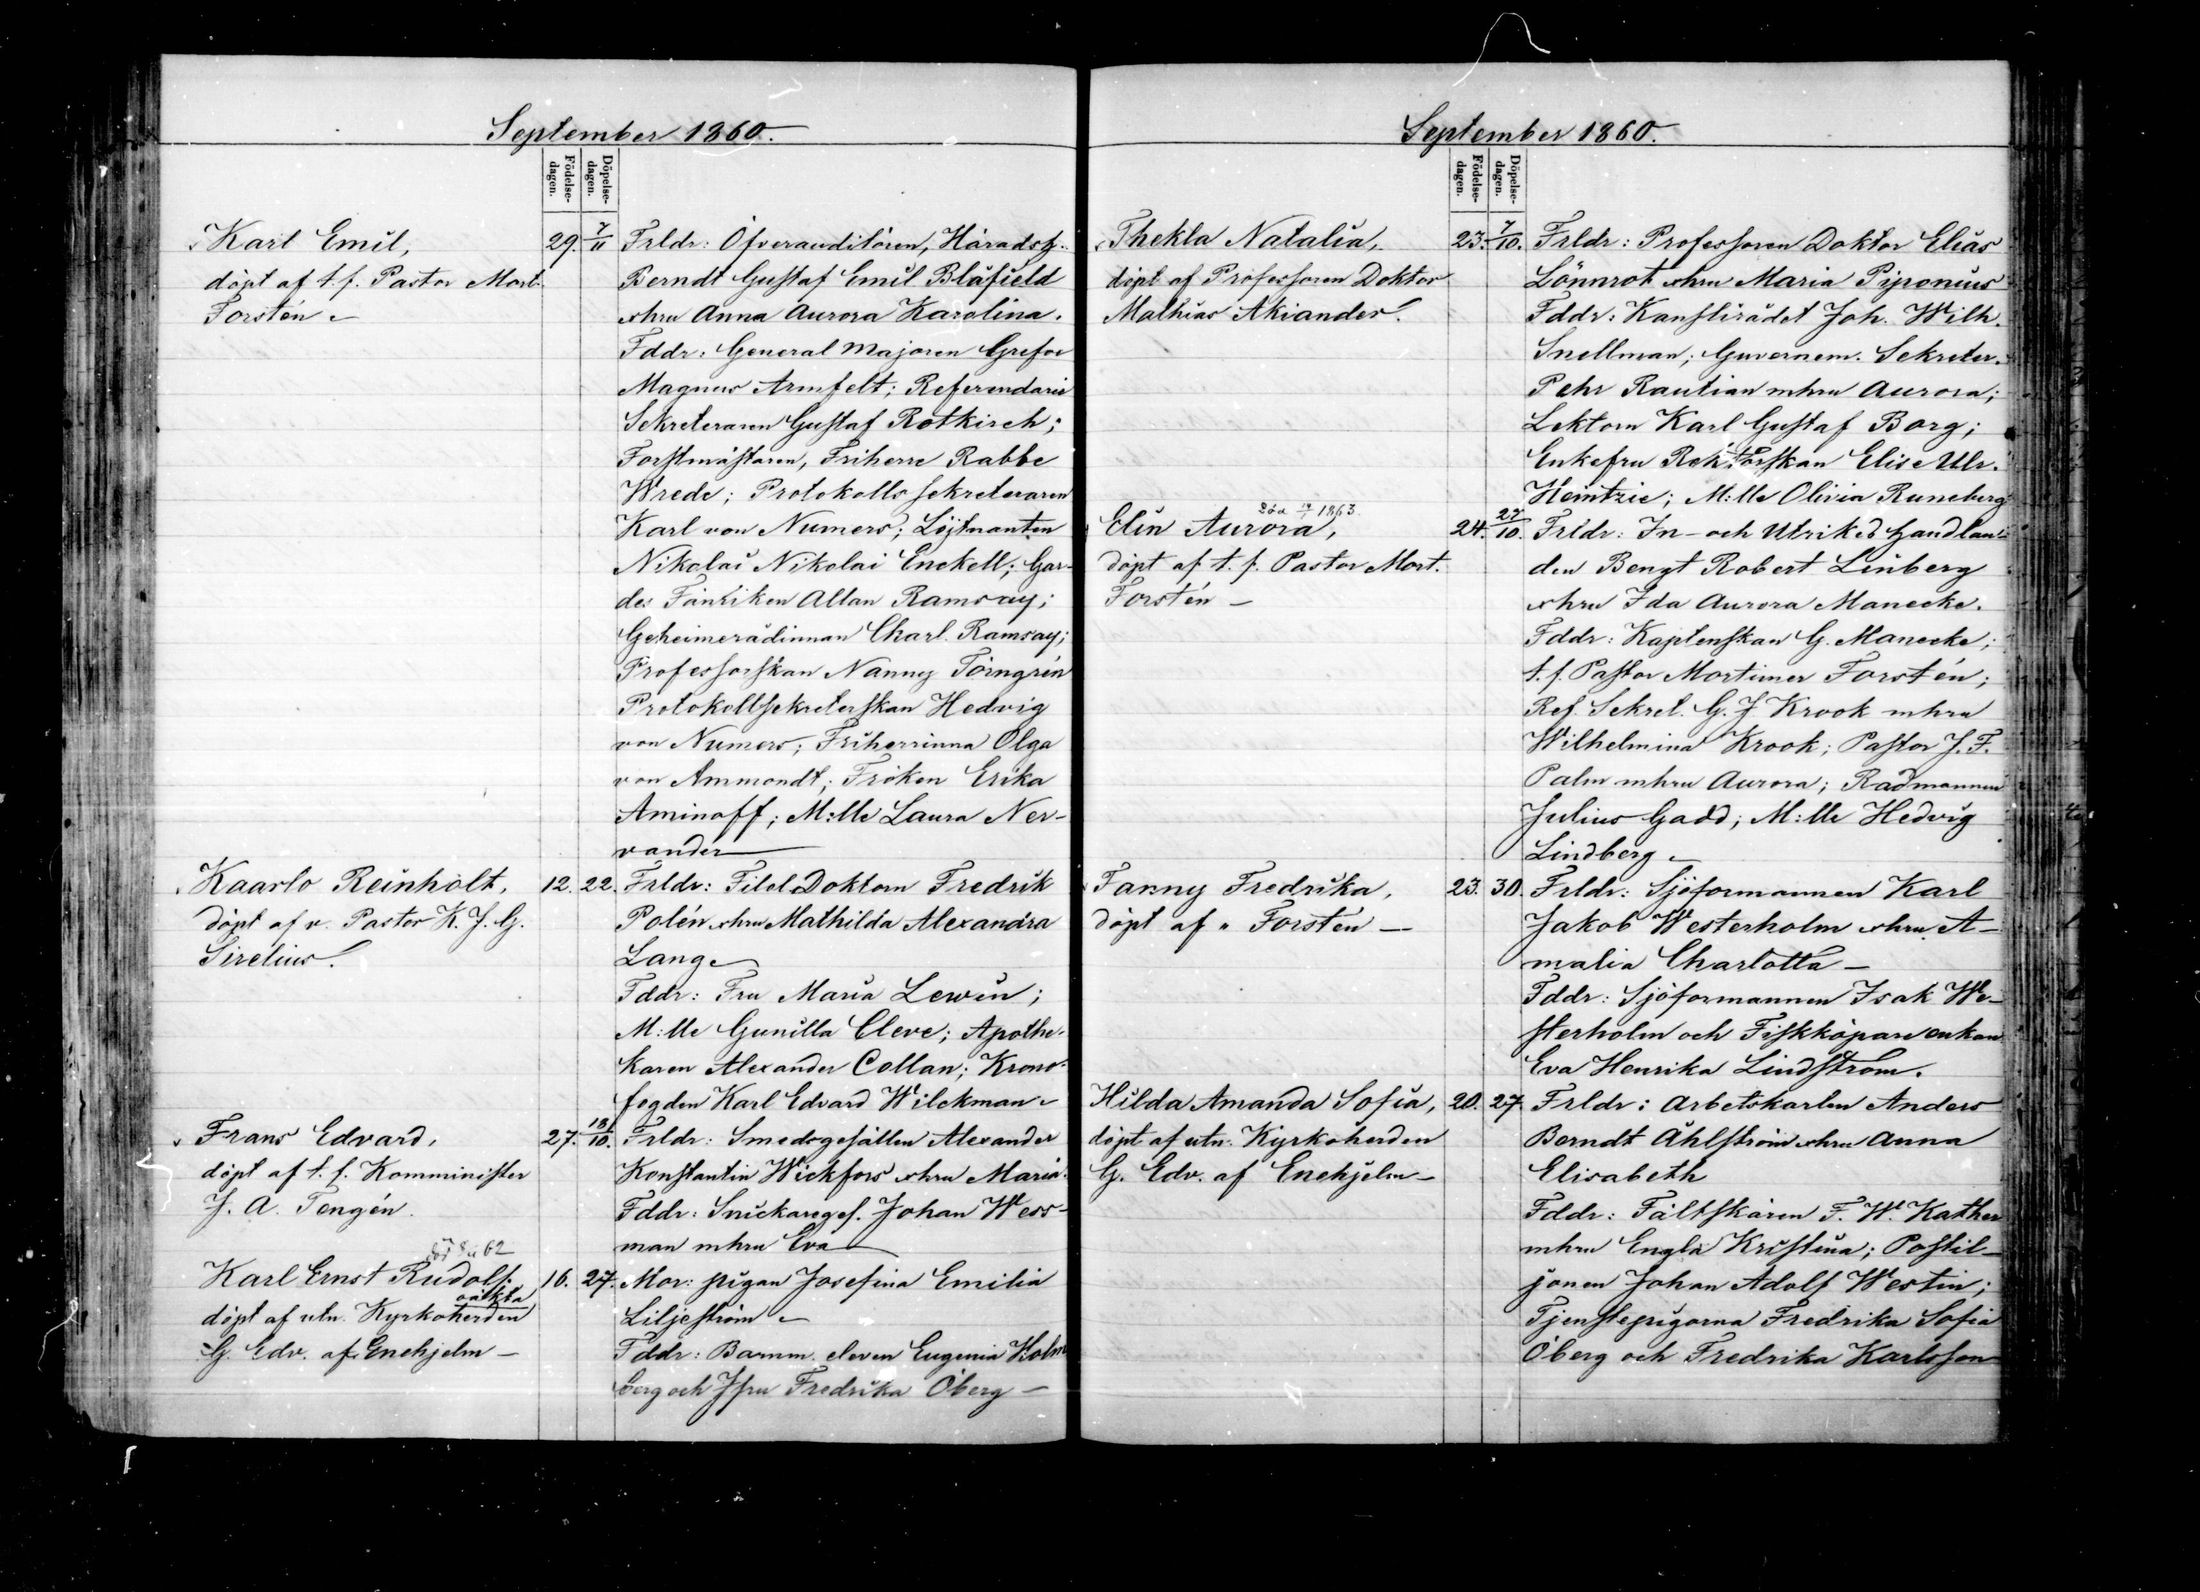 September 1860.
Födelse-
dagen.
Döpelse-
dagen.
Karl Emil,
döpt af t. f. Pastor Mort.
Forstén
29. 7/11
Frldr: Öfverauditören, Häradsh.
Berndt Gustaf Emil Blåfield
o hru Anna Aurora Karolina.
Fddr: General Majoren Grefve
Magnus Armfelt; Referendarie
Sekreteraren Gustaf Rotkirch;
Forstmästaren, Friherre Rabbe
Wrede; Protokolls sekreteraren
Karl von Numers; Löjtnanten
Nikolai Nikolai Enckell; Gar-
des Fänriken Allan Ramsay;
Geheimerådinnan Charl. Ramsay;
Professorskan Nanny Törngrén
Protokollsekreterskan Hedvig
von Numers; Friherrinna Olga
von Ammondt; Fröken Erika
Aminoff; M:lle Laura Ner-
vander
Kaarlo Reinholt,
döpt af v. Pastor K. J. G.
Sirelius.
12. 22.
Frldr: Filol. Doktorn Fredrik
Polén o hru Mathilda Alexandra
Lange
Fddr: Fru Maria Lewin;
M:lle Gunilla Cleve; Apothe-
karen Alexander Collan; Krono-
fogden Karl Edvard Wilckman
Frans Edvard,
döpt af t. f. Komminister
J. A. Tengén.
27. 13/10.
Frldr: Smedsgesällen Alexander
Konstantin Wickfors o hru Maria.
Fddr: Snickareges. Johan Wess-
man mhru Eva
död 62
Karl Ernst Rudolf.
oäkta
döpt af utn. Kyrkoherden
G. Edv. af Enehjelm
16. 27.
Mor: pigan Josefina Emilia
Liljeström
Fddr: Barnm. eleven Eugenia Holm
berg och Jfru Fredrika Öberg
September 1860.
Födelse-
dagen.
Döpelse-
dagen.
Thekla Natalia,
döpt af Professoren Doktor
Mathias Akiander.
23. 7/10.
Frldr: Professoren Doktor Elias
Lönnrot o hru Maria Piponius
Fddr: Kanslirådet Joh. Wilh.
Snellman; Guvernem. Sekreter.
Pehr Rautian mhru Aurora;
Lektorn Karl Gustaf Borg;
Enkefru Rektorskan Elise Ulr.
Heintzie; M:lle Olivia Runeberg
död 1863.
Elin Aurora,
döpt af t. f. Pastor Mort.
Forstén
24. 27/10.
Frldr: In- och Utrikes handlan-
den Bengt Robert Linberg
o hru Ida Aurora Manecke.
Fddr: Kaptenskan G. Manecke;
t. f. Pastor Mortimer Forstén;
Ref. Sekret. G. J Krook mhru
Wilhelmina Krook; Pastor J. F.
Palm mhru Aurora; Rådmannen
Julius Gadd; M:lle Hedvig
Lindberg
Fanny Fredrika,
döpt af " Forstén
23. 30.
Frldr: Sjöformannen Karl
Jakob Westerholm o hru A-
malia Charlotta
Fddr: Sjöformannen Isak We-
sterholm och Fiskköpare enkan
Eva Henrika Lindström.
Hilda Amanda Sofia,
döpt af utn. Kyrkoherden
G. Edv. af Enehjelm
20. 27
Frldr: Arbetskarlen Anders
Berndt Åhlström o hru Anna
Elisabeth
Fddr: Fältskären F. W. Kather
mhru Engla Kristina; Postil-
jonen Johan Adolf Westin;
Tjenstepigorna Fredrika Sofia
Öberg och Fredrika Karlsson